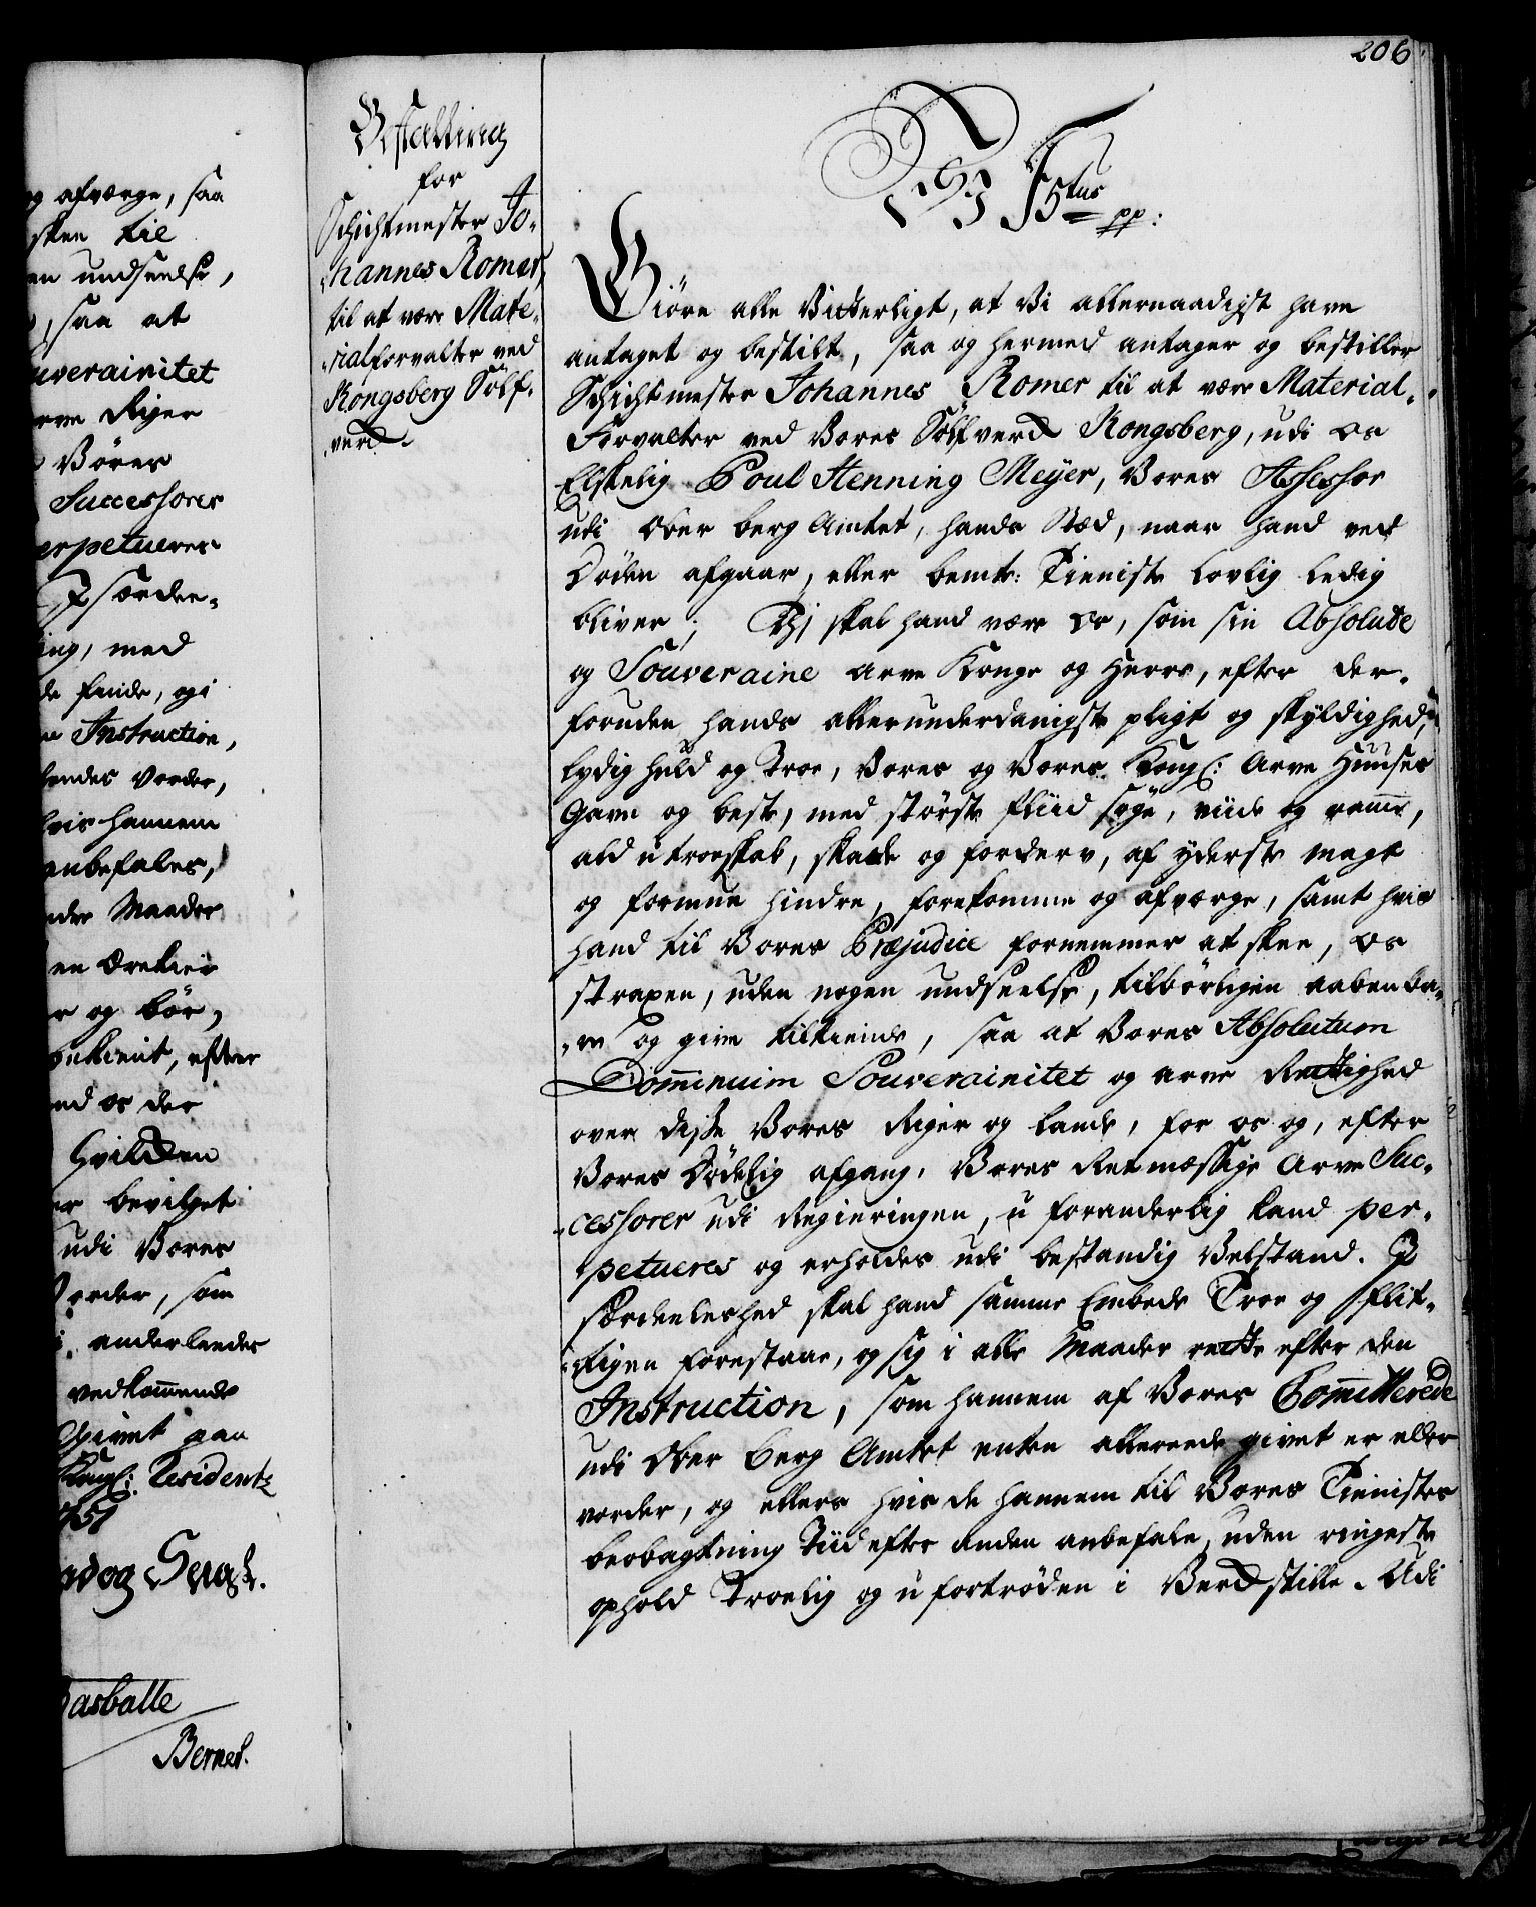 206
og afværge, saa
skee til
en undseelse,
saa at
uverainitet
arve Riger
Vores
Successorer
erpetueres
I særdee-
ing, med
Instruction,
lendes vorder,
hvis hannem
anbefales,
nder Maader
en
r og bör,
efter
ed os der
Hvilcken
er bevilget
udi Vores
vorder, som
anderleedes
vedkommende
Givet paa
Kongl: Residentz
og Segl.
Bernes.
Bestalling
for
Schichtmester Jo-
hannes Romer,
til at være Mate-
rialforvalter ved
Kongsberg Sölf-
verck.
Wj F 5tus pp:
Giöre alle Vitterligt, at Vi allernaadigst have
antaget og bestilt, saa og hermed antager og bestiller
Schichtmester Johannes Romer til at være Material-
Forvalter ved Vores Sölfverck Kongsberg, udi os
Elskelig Poul Henning Meÿer, Vores Assessor
udi Ober berg Amtet, hands Stæd, naar hand ved
Döden afgaar, eller bemte: Tieniste lovlig ledig
bliver; Thj skal hand være os, som sin Absolute
og Souveraine Arve Konge og Herre, efter der-
foruden hands allerunderdanigste pligt og skyldighed,
lydig huld og troe, Vores og Vores Kongl: Arve Huuses
Gavn og beste, med störste fliid söge, viide og ramme,
ald utroeskab, skade og forderv, af yderste magt
og formue hindre, forekomme og afværge, samt hvis
hand til Vores Præjudice fornemmer at skee, os
straxen, uden nogen undseelse, tilbörligen aabenba-
re og give tilkiende, saa at Vores Absolutum
Dominium Souverainitet og arve Rettighed
over disse Vores Riger og Lande, for os og, efter
Vores Dödelig afgang, Vores Retmæssige Arve Suc-
cessorer udi Regieringen, uforanderlig kand per-
petueres og erholdes udi bestandig Velstand. I
særdeeleshed skal hand samme Embede Troe og flit-
tigen forestaae, og sig i alle Maader rette efter den
Instruction, som hannem af Vores Committerede
udi Ober Berg Amtet enten allereede givet er eller
vorder, og ellers hvis de hannem til Vores Tienistes
beobagtning Tiid efter anden anbefale, uden ringeste
ophold Troelig og ufortröden i Verckstille. Udi